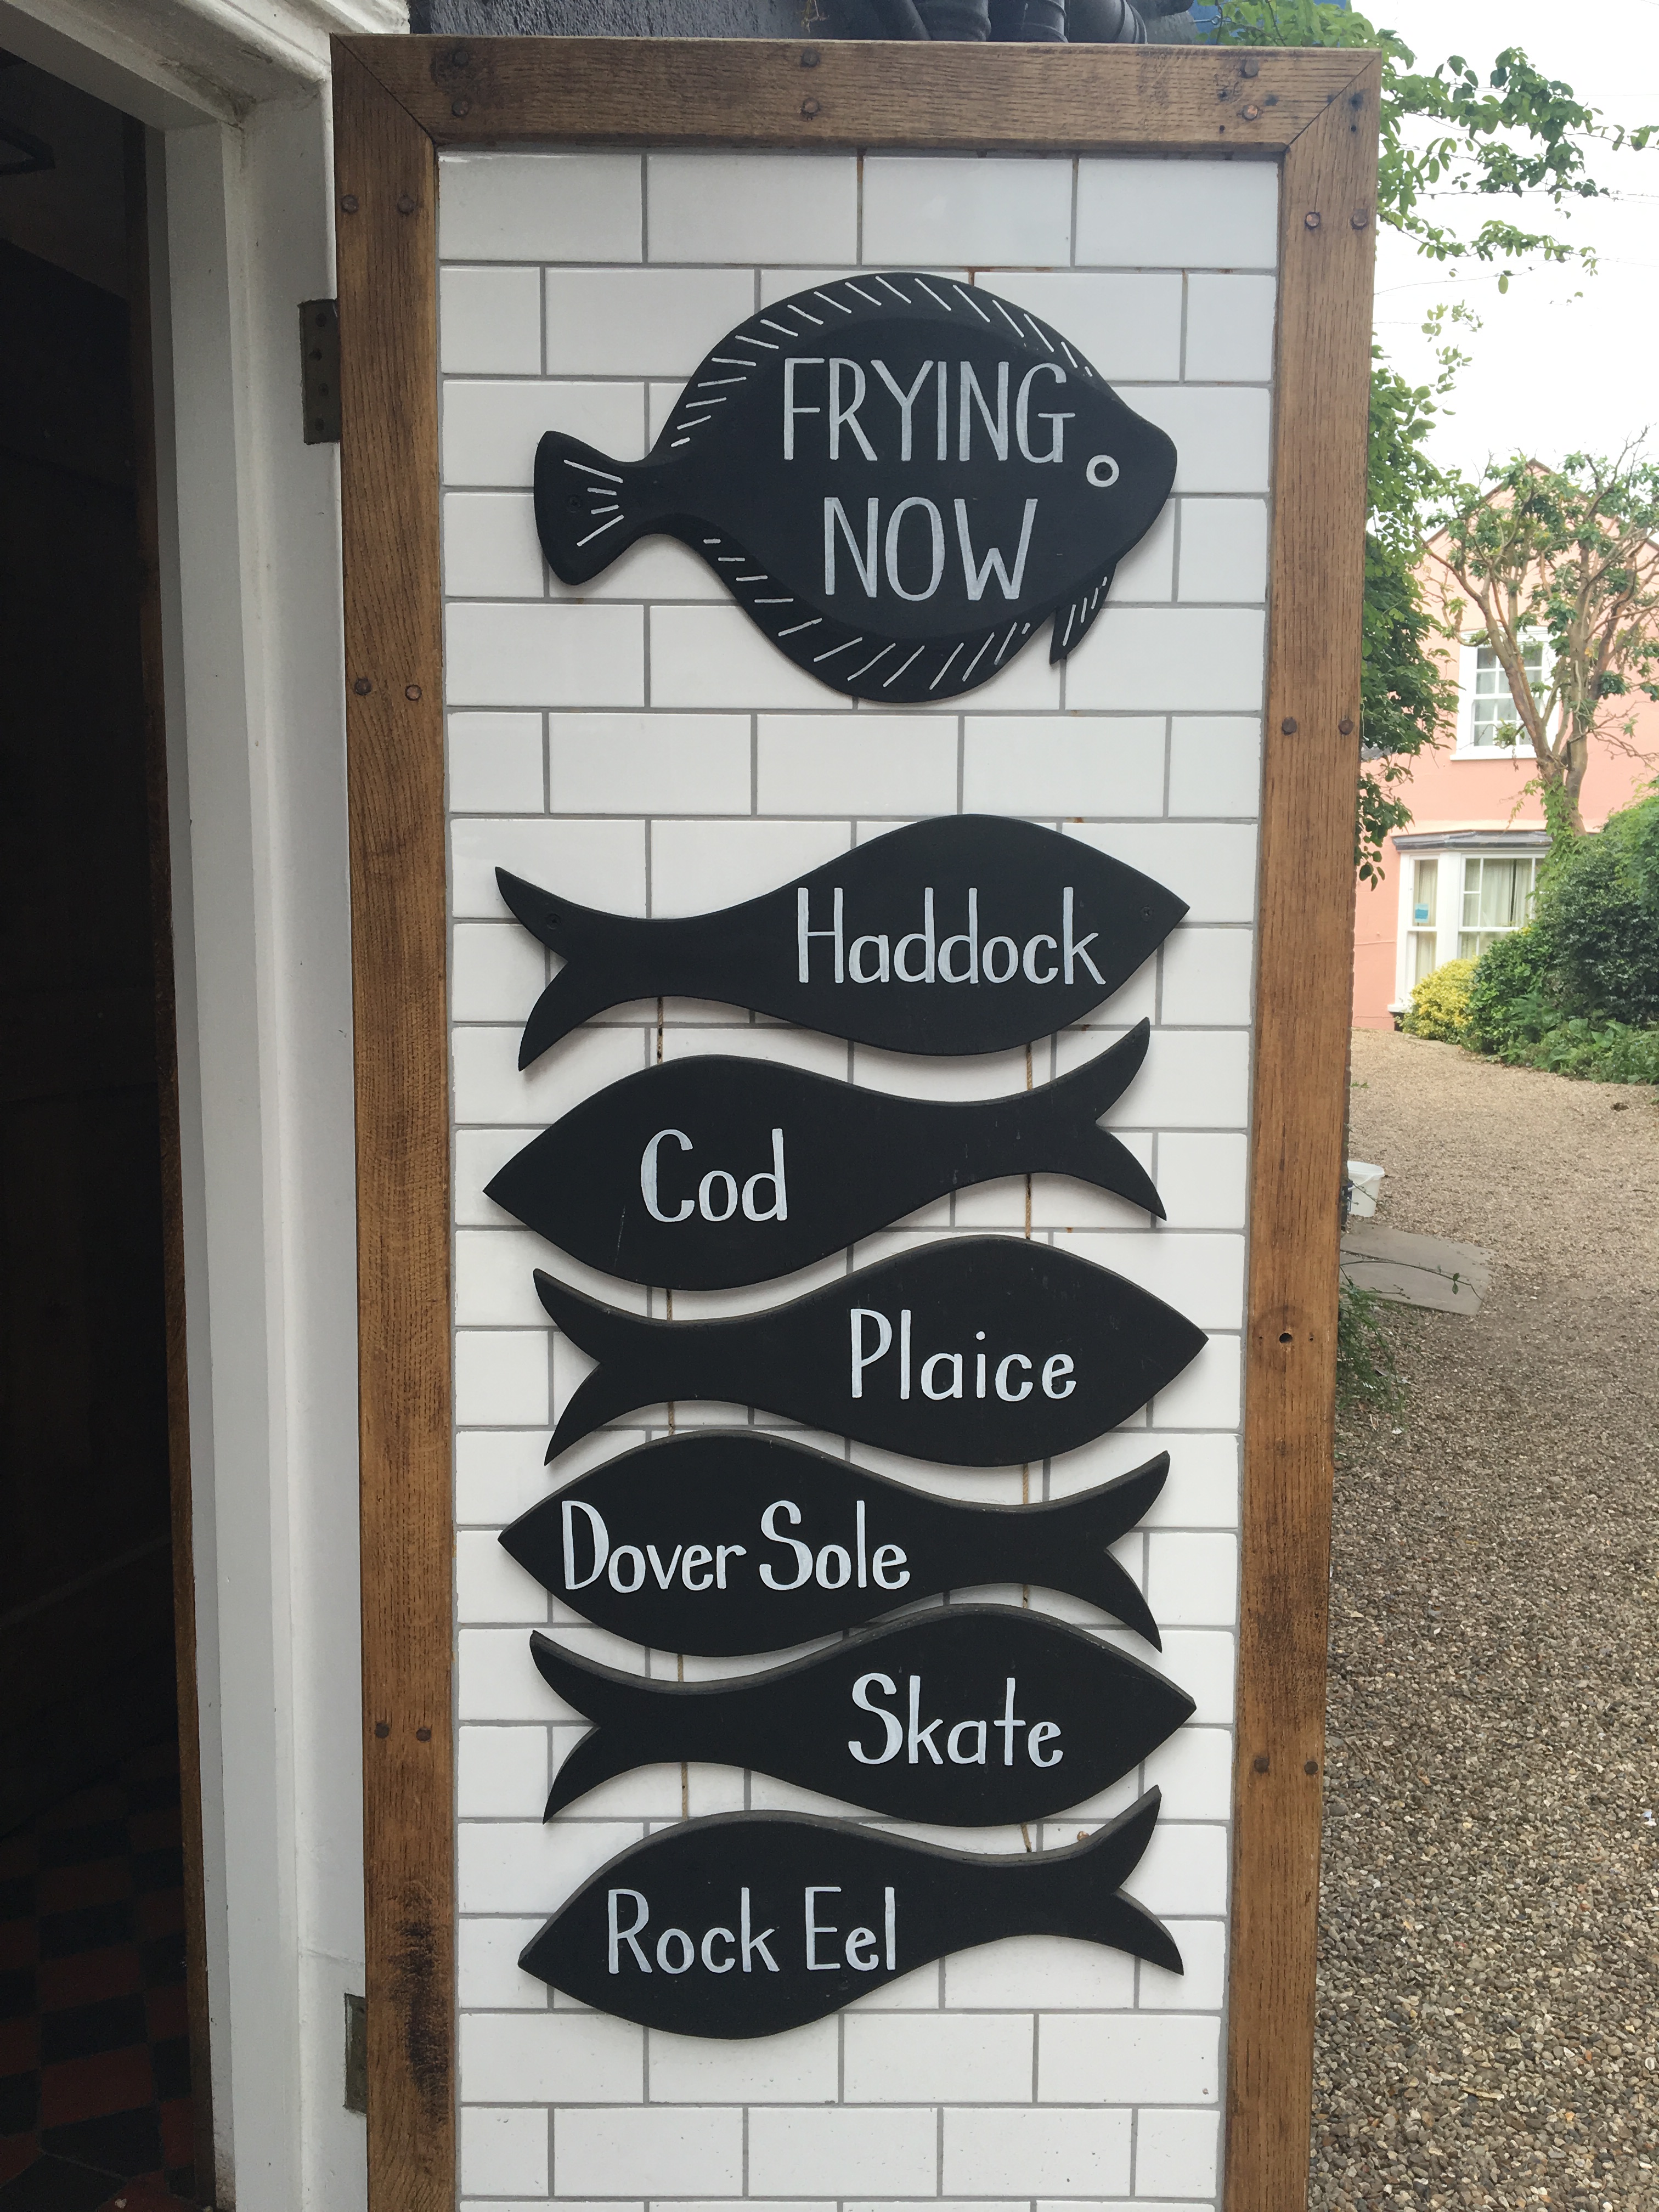 FRYING
NOW
Haddock
Cod
Plaice
Dover Sole
Skate
Rock Eel